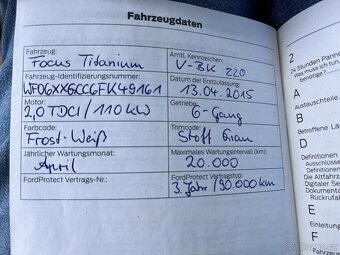 Fahrzeugdaten
Fahrzeug:
Focus Titanium
Amtl. Kennzeichen:
V-BK 220
Fahrzeug-Identifizierungsnummer:
WF06XXGCC6FK49161
Datum der Erstzulassung:
13.04.2015
Motor:
2,0 TDCI / 110 kW
Getriebe:
6-Gang
Farbcode:
Frost-Weiß
Trimcode:
Stoff Grau
Jährlicher Wartungsmonat:
April
Maximales Wartungsintervall (km):
20.000
FordProtect Vertrags-Nr.:
FordProtect Vertragstyp:
3. Jahr / 90.000 km
2
24 Stunden Panne
Was muss ich tun,
benötige?
A
Austauschteile
B
Betroffene Lä
D
Definitionen
Definitionen
Ausschlüssen
Die Altfahrz
Digitaler Se
Dokumentat
Rückrufak
E
Einleitung
F